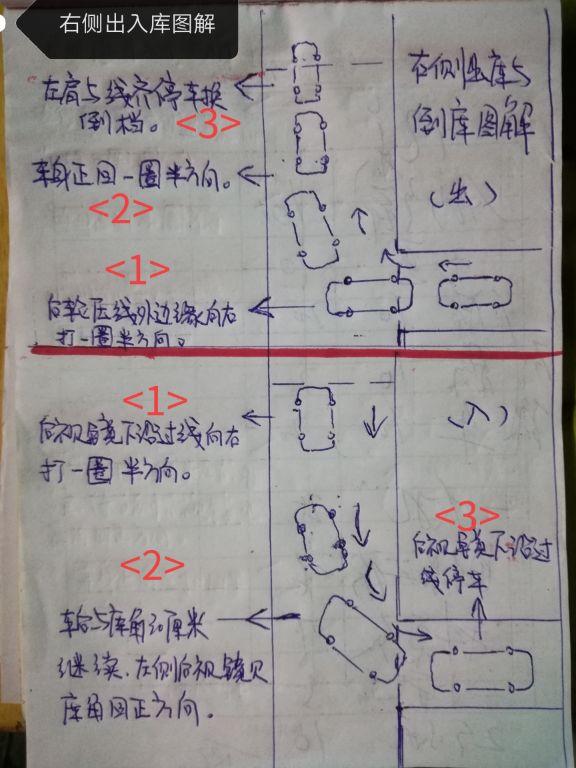 右侧出入库图解
右侧出库与
倒库图解
(出)
左肩与线齐停车换
倒档。<3>
车身正回一圈半方向。
<2>
<1>
后轮压线外边缘向右
打一圈半方向。
(入)
<1>
后视镜下沿过线向右
打一圈半方向。
<2>
车轮与库角30厘米
继续.左侧后视镜见
库角回正方向。
<3>
后视镜下沿过
线停车